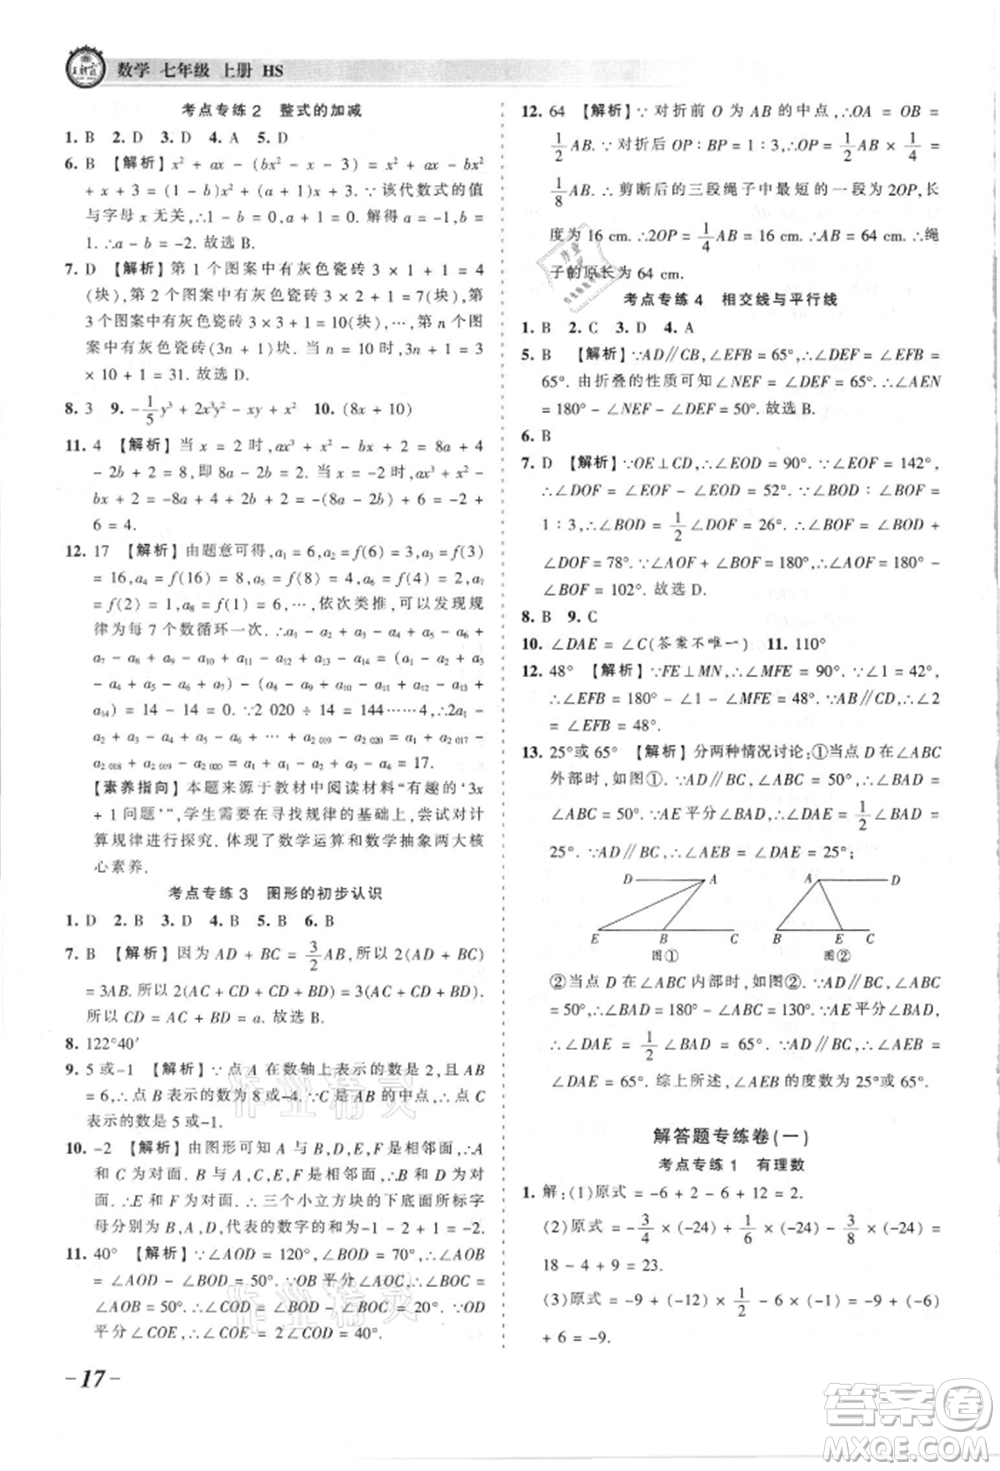 王朝霞
数学 七年级 上册 HS
考点专练2 整式的加减
1. B 2. D 3. D 4. A 5. D
6. B 【解析】x² + ax - (bx² - x - 3) = x² + ax - bx²
+ x + 3 = (1 - b)x² + (a + 1)x + 3. ∵该代数式的值
与字母 x 无关,∴1 - b = 0,a + 1 = 0. 解得 a = -1,b =
1. ∴a - b = -2. 故选 B.
7. D 【解析】第 1 个图案中有灰色瓷砖 3 × 1 + 1 = 4
(块),第 2 个图案中有灰色瓷砖 3 × 2 + 1 = 7
(块),第 3 个图案中有灰色瓷砖 3 × 3 + 1 = 10
(块),第 4 个图案中有灰色瓷砖(块),…,第 n 个图
案中有灰色瓷砖(3n + 1)块. ∴当 n = 10 时,3n + 1 =
3 × 10 + 1 = 31. 故选 D.
8. 3 9. -1/5y³ + 2x³y² - xy + x² 10. (8x + 10)
11. 4 【解析】当 x = 2 时,ax³ + x² - bx + 2 = 8a +
4 - 2b + 2 = 8,即 8a - 2b = 2. 当 x = -2 时,ax³ +
x² - bx + 2 = -8a + 4 + 2b + 2 = -(8a - 2b) + 6 = -2 +
6 = 4.
12. 17 【解析】由题意可得,a₁ = 6,a₂ = f(6) = 3,a₃ = f(3)
= 16,a₄ = f(16) = 8,a₅ = f(8) = 4,a₆ = f(4) = 2,a₇
= f(2) = 1,a₈ = f(1) = 6,…,依次类推,可以发现规
律为每 7 个数循环一次. ∴a₁ - a₂ + a₃ - a₄ + a₅ - a₆
+ a₇ - a₈ + a₉ - a₁₀ + a₁₁ - a₁₂ + a₁₃ -
a₁₄) = 14 - 14 = 0. ∵2 020 ÷ 14 = 144……4,∴2a₁ -
a₂ + a₃ - a₄ + a₅ - a₆ + … + a₂₀₁₇ -
a₂₀₁₈ + a₂₀₁₉ - a₂₀₂₀ = a₁ + a₁ - a₂ + a₃ - a₄ = 17.
【素养指向】本题来源于教材中阅读材料“有趣的‘3x
+ 1 问题’”,学生需要在寻找规律的基础上,尝试对计
算规律进行探究. 体现了数学运算和数学抽象两大核
心素养.
考点专练3 图形的初步认识
1. D 2. B 3. D 4. D 5. B 6. B
7. B 【解析】因为 AD + BC = 3/2 AB,所以 2(AD + BC)
= 3AB. 所以 2(AC + CD + CD + BD) = 3(AC + CD + BD).
所以 CD = AC + BD = a. 故选 B.
8. 122°40′
9. 5 或-1 【解析】∵点 A 在数轴上表示的数是 2,AB
= 6,∴点 B 表示的数是 8 或-4. ∵C 是 AB 的中点,∴点
C 表示的数是 5 或-1.
10. -2 【解析】由图形可知 A 与 B,D,E,F 相邻,∴A
与 C 相对. ∵B 与 C,D,A,F 相邻,∴B 与 E 相对,∴
D 与 F 相对. ∴三个小立方块的下底面所标的字
母分别为 B,D,A,代表的数字的和为 1 + 0 - 3 = -2.
11. 40° 【解析】∵∠AOD = 120°,∠BOD = 70°,∴∠AOB =
∠AOD - ∠BOD = 50°. ∵OB 平分∠AOC,∴∠BOC =
∠AOB = 50°. ∴∠COD = ∠BOD - ∠BOC = 20°. ∵OD
平分∠COE,∴∠COE = 2∠COD = 40°.
- 17 -
12. 64 【解析】∵对折前 O 为 AB 的中点,∴OA = OB =
1/2 AB. ∵对折后 OP∶BP = 1∶3,∴OP = 1/2 AB × 1/4 =
1/8 AB. ∴剪断后的三段绳子中最短的为 2OP,长
度为 16 cm. ∴2OP = 1/4 AB = 16 cm,∴AB = 64 cm. ∴绳
子的原长为 64 cm.
考点专练4 相交线与平行线
1. B 2. C 3. D 4. A
5. B 【解析】∵AD∥CB,∠EFB = 65°,∴∠DEF = ∠EFB =
65°. 由折叠的性质可知∠NEF = ∠DEF = 65°. ∴∠AEN
= 180° - ∠NEF - ∠DEF = 50°. 故选 B.
6. B
7. D 【解析】∵OE⊥CD,∴∠EOD = 90°. ∵∠EOF = 142°,
∴∠DOF = ∠EOF - ∠EOD = 52°. ∵∠BOD∶∠BOF =
1∶3,∴∠BOD = 1/2 ∠DOF = 26°. ∴∠BOF = ∠BOD +
∠DOF = 78°. ∵∠AOF + ∠BOF = 180°,∴∠AOF =
180° - ∠BOF = 102°. 故选 D.
8. B 9. C
10. ∠DAE = ∠C(答案不唯一) 11. 110°
12. 48° 【解析】∵FE⊥MN,∴∠MFE = 90°. ∵∠1 = 42°,
∴∠EFB = 180° - ∠1 - ∠MFE = 48°. ∵AB∥CD,∴∠2
= ∠EFB = 48°.
13. 25°或 65° 【解析】分两种情况讨论:①当点 D 在∠ABC
外部时,如图①. ∵AD∥BC,∴∠BAD = ∠ABC =
50°. ∵AE 平分∠BAD,∴∠EAD = 1/2 ∠BAD =
25°. ∵AD∥BC,∴∠AEB = ∠EAD = 25°;
D A A D
E B C B E C
图① 图②
②当点 D 在∠ABC 内部时,如图②. ∵AD∥BC,
∴∠BAD + ∠ABC = 180°. ∴∠BAD = 180° - ∠ABC =
130°. ∵AE 平分∠BAD,∴∠EAD = 1/2 ∠BAD =
65°. ∵AD∥BC,∴∠AEB = ∠EAD = 65°. 综上所述,∠AEB 的度数为
25°或 65°.
解答题专练卷(一)
考点专练1 有理数
1. 解:(1)原式 = -6 + 6 - 4 + 6 = 2.
(2)原式 = -3/4 × (-24) + 1/6 × (-24) - 3/8 × (-24) =
18 - 4 + 9 = 23.
(3)原式 = -9 + (-12) × 1/2 - 6 ÷ (-1) = -9 + (-6)
+ 6 = -9.
作业精灵
作业精灵
答案圈
MXQE.COM